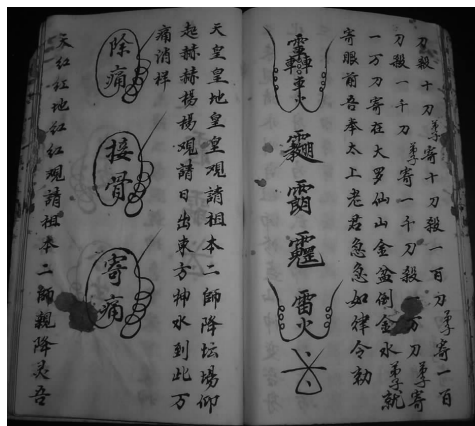 刀殺十刀弟寄十刀殺一百刀弟寄一百
刀殺一千刀弟寄一千刀殺一万刀弟寄
一万刀寄在大罗仙山金盆倒金水弟就
寄眼前吾奉太上老君急急如律令勅
雷火
天皇皇地皇皇观請祖本二師降坛場仰
起赫赫楊楊观請日出東方神水到此万
痛消样
除痛
接骨
寄痛
天红红地红红观請祖本二師親降灵吾